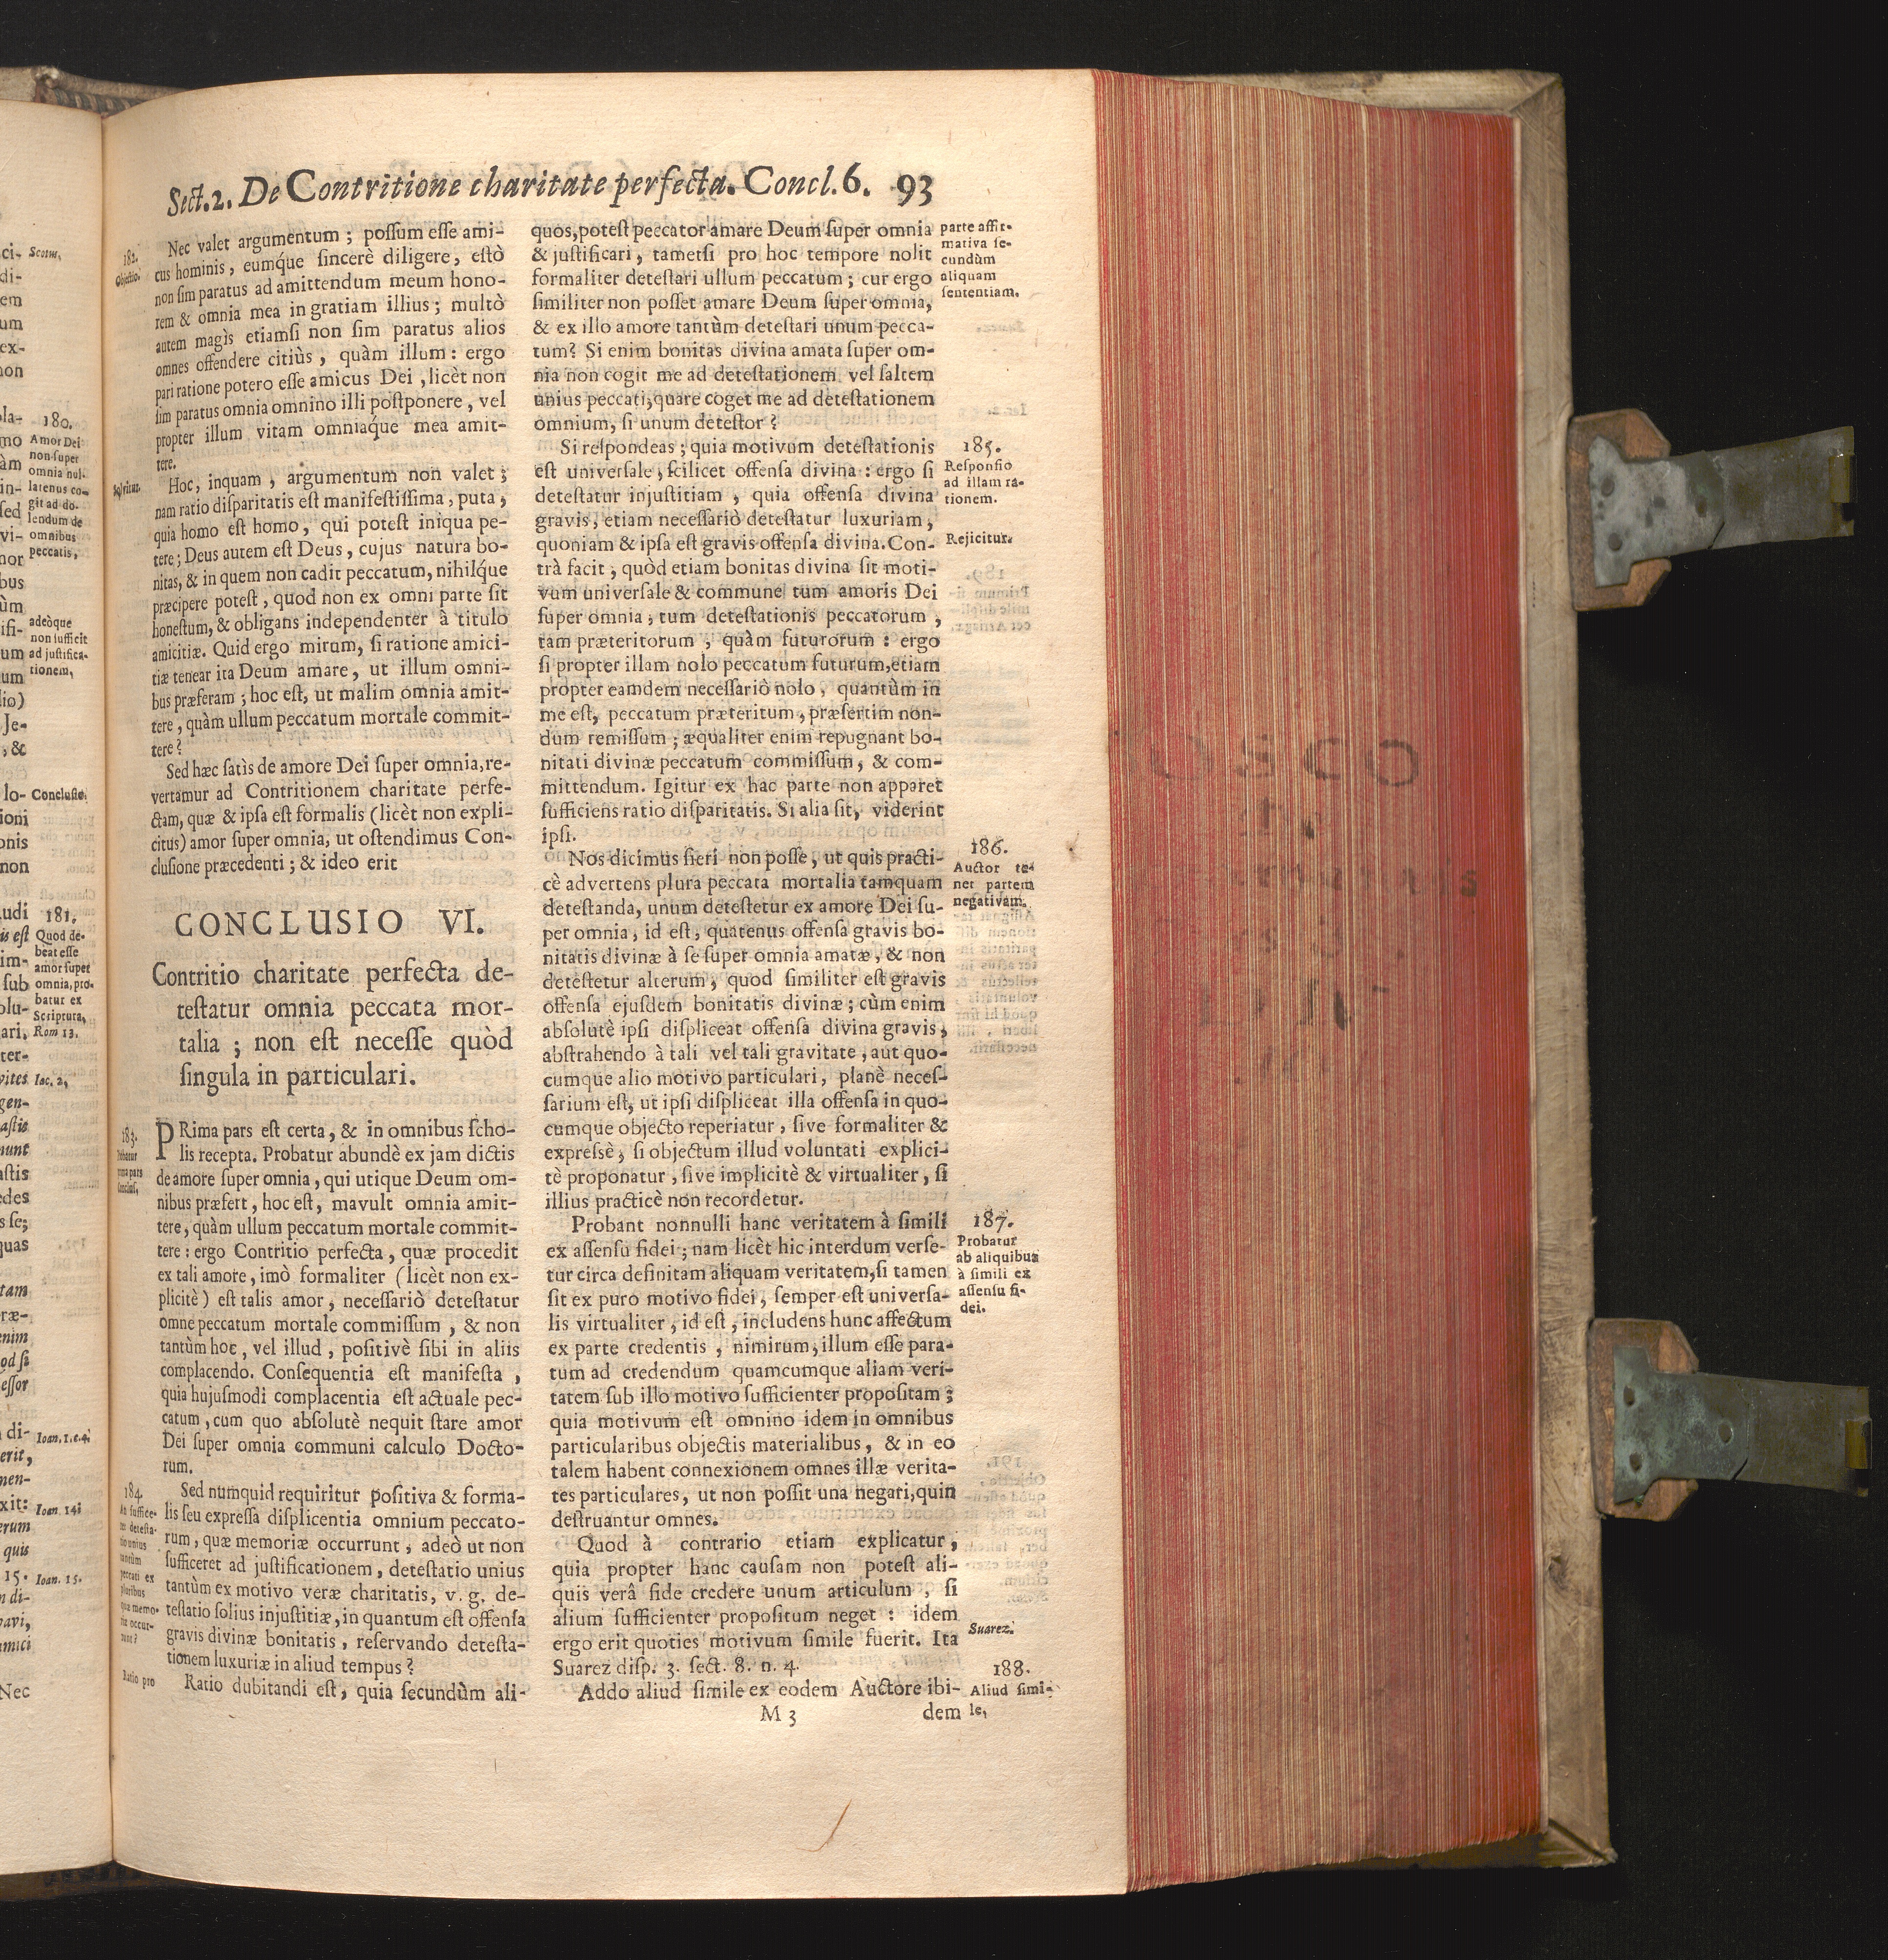 Sect. 2. De Contritione charitate perfecta. Concl. 6. 93
182.
Objectio.
Nec valet argumentum ; possum esse ami-
cus hominis, eumq́ue sincerè diligere, estò
non sim paratus ad amittendum meum hono-
rem & omnia mea in gratiam illius ; multò
autem magìs etiamsi non sim paratus alios
omnes offendere citiùs, quàm illum : ergo
pari ratione potero esse amicus Dei, licèt non
sim paratus omnia omnino illi postponere, vel
propter illum vitam omniaq́ue mea amit-
tere.
Hoc, inquam, argumentum non valet ;
nam ratio disparitatis est manifestissima, puta,
quia homo est homo, qui potest iniqua pe-
tere ; Deus autem est Deus, cujus natura bo-
nitas, & in quem non cadit peccatum, nihilq́ue
præcipere potest, quod non ex omni parte sit
honestum, & obligans independenter à titulo
amicitiæ. Quid ergo mirum, si ratione amici-
tiæ tenear ita Deum amare, ut illum omni-
bus præferam ; hoc est, ut malim omnia amit-
tere, quàm ullum peccatum mortale commit-
tere ?
Sed hæc satìs de amore Dei super omnia, re-
vertamur ad Contritionem charitate perfe-
ctam, quæ & ipsa est formalis (licèt non expli-
citus) amor super omnia, ut ostendimus Con-
clusione præcedenti ; & ideo erit
CONCLUSIO VI.
Contritio charitate perfecta de-
testatur omnia peccata mor-
talia ; non est necesse quòd
singula in particulari.
183.
PRima pars est certa, & in omnibus scho-
lis recepta. Probatur abundè ex jam dictis
de amore super omnia, qui utique Deum om-
nibus præfert, hoc est, mavult omnia amit-
tere, quàm ullum peccatum mortale commit-
tere : ergo Contritio perfecta, quæ procedit
ex tali amore, imò formaliter (licèt non ex-
plicitè) est talis amor, necessariò detestatur
omne peccatum mortale commissum, & non
tantùm hoc, vel illud, positivè sibi in aliis
complacendo. Consequentia est manifesta,
quia hujusmodi complacentia est actuale pec-
catum, cum quo absolutè nequit stare amor
Dei super omnia communi calculo Docto-
rum.
184.
Sed numquid requiritur positiva & forma-
lis seu expressa displicentia omnium peccato-
rum, quæ memoriæ occurrunt, adeò ut non
sufficeret ad justificationem, detestatio unius
tantùm ex motivo veræ charitatis, v. g. de-
testatio solius injustitiæ, in quantum est offensa
gravis divinæ bonitatis, reservando detesta-
tionem luxuriæ in aliud tempus ?
Ratio pro
Ratio dubitandi est, quia secundùm ali-
quos, potest peccator amare Deum super omnia
& justificari, tametsi pro hoc tempore nolit
formaliter detestari ullum peccatum ; cur ergo
similiter non posset amare Deum super omnia,
& ex illo amore tantùm detestari unum pecca-
tum ? Si enim bonitas divina amata super om-
nia non cogit me ad detestationem vel saltem
unius peccati, quare coget me ad detestationem
omnium, si unum detestor ?
parte affir-
mativa se-
cundùm
aliquam
sententiam.
Si respondeas ; quia motivum detestationis
est universale, scilicet offensa divina : ergo si
detestatur injustitiam, quia offensa divina
gravis, etiam necessariò detestatur luxuriam,
quoniam & ipsa est gravis offensa divina. Con-
trà facit, quòd etiam bonitas divina sit moti-
vum universale & commune tum amoris Dei
super omnia, tum detestationis peccatorum,
tam præteritorum, quàm futurorum : ergo
si propter illam nolo peccatum futurum, etiam
propter eamdem necessariò nolo, quantùm in
me est, peccatum præteritum, præsertim non-
dum remissum ; æqualiter enim repugnant bo-
nitati divinæ peccatum commissum, & com-
mittendum. Igitur ex hac parte non apparet
sufficiens ratio disparitatis. Si alia sit, viderint
ipsi.
185.
Responsio
ad illam ra-
tionem.
Rejicitur.
Nos dicimus fieri non posse, ut quis practi-
cè advertens plura peccata mortalia tamquam
detestanda, unum detestetur ex amore Dei su-
per omnia, id est, quatenus offensa gravis bo-
nitatis divinæ à se super omnia amatæ, & non
detestetur alterum, quod similiter est gravis
offensa ejusdem bonitatis divinæ ; cùm enim
absolutè ipsi displiceat offensa divina gravis,
abstrahendo à tali vel tali gravitate, aut quo-
cumque alio motivo particulari, planè neces-
sarium est, ut ipsi displiceat illa offensa in quo-
cumque objecto reperiatur, sive formaliter &
expressè, si objectum illud voluntati explici-
tè proponatur, sive implicitè & virtualiter, si
illius practicè non recordetur.
186.
Auctor te-
net partem
negativam.
Probant nonnulli hanc veritatem à simili
ex assensu fidei ; nam licèt hic interdum verse-
tur circa definitam aliquam veritatem, si tamen
sit ex puro motivo fidei, semper est universa-
lis virtualiter, id est, includens hunc affectum
ex parte credentis, nimirum, illum esse para-
tum ad credendum quamcumque aliam veri-
tatem sub illo motivo sufficienter propositam ;
quia motivum est omnino idem in omnibus
particularibus objectis materialibus, & in eo
talem habent connexionem omnes illæ verita-
tes particulares, ut non possit una negari, quin
destruantur omnes.
187.
Probatur
ab aliquibus
à simili ex
assensu fi-
dei.
Quod à contrario etiam explicatur,
quia propter hanc causam non potest ali-
quis verâ fide credere unum articulum, si
alium sufficienter propositum neget : idem
ergo erit quoties motivum simile fuerit. Ita
Suarez disp. 3. sect. 8. n. 4.
Suarez.
Addo aliud simile ex eodem Auctore ibi-
188.
Aliud simi-
le,
M 3 dem
Scotus,
180.
Amor Dei
non super
omnia nul-
latenus co-
git ad do-
lendum de
omnibus
peccatis,
adeòque
non sufficit
ad justifica-
tionem,
Conclusio.
181.
Quod de-
beat esse
amor super
omnia, pro-
batur ex
Scriptura,
Rom 13.
Iac. 2,
Ioan. 1. c. 4.
Ioan. 14.
Ioan. 15.
Nec